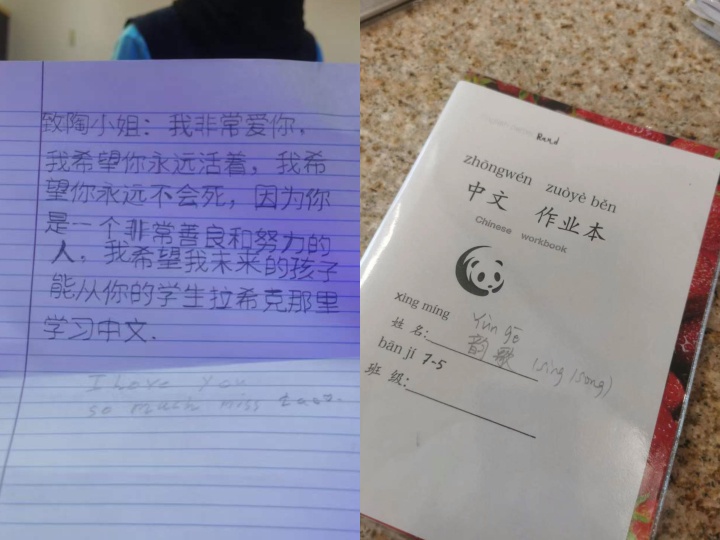 致陶小姐：我非常爱你，
我希望你永远活着，我希
望你永远不会死，因为你
是一个非常善良和努力的
人。我希望我未来的孩子
能从你的学生拉希克那里
学习中文.
I love you
so much miss
Rand
zhōngwén zuòyè běn
中文 作业本
Chinese workbook
xìng míng Yùn gē
姓 名: 韵歌 (sing/song)
bān jí 7-5
班 级: